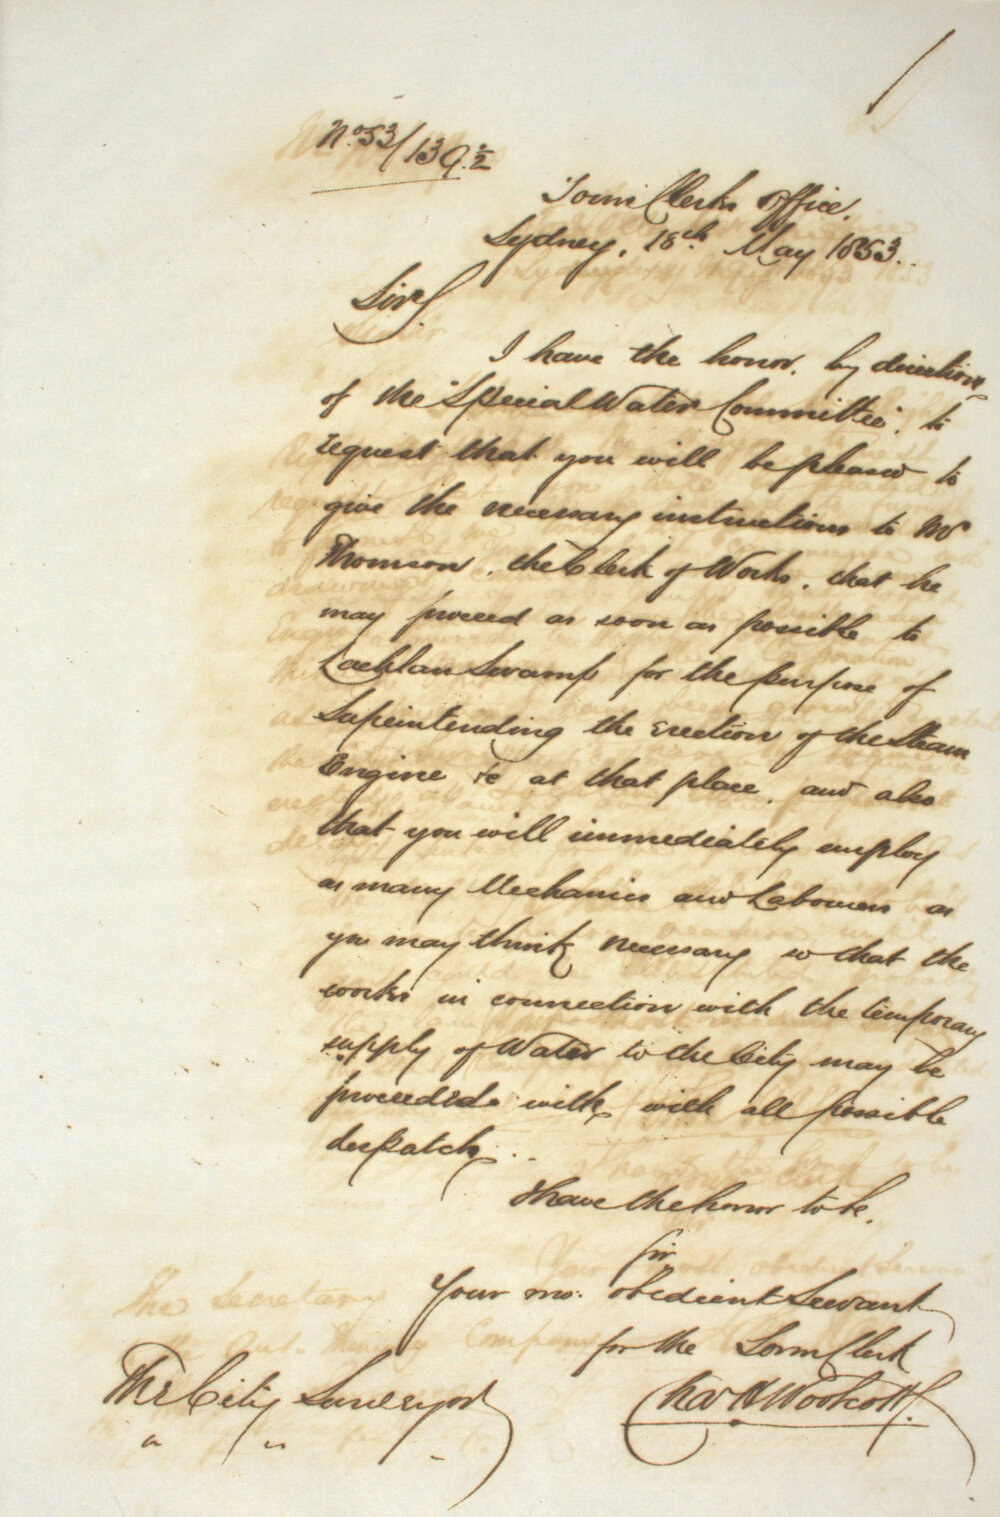 No. 53/139.2
Town Clerks Office,
Sydney, 18th May 1853.
Sir,
I have the honor, by direction
of the "Special Water Committee", to
request that you will be pleased to
give the necessary instructions to Mr
Thomson, the Clerk of Works, that he
may proceed as soon as possible to
Lachlan Swamp for the purpose of
Superintending the Erection of the Steam
Engine &c at that place, and also
that you will immediately employ
as many Mechanics and Labourers as
you may think necessary so that the
works in connection with the temporary
supply of Water to the City may be
proceeded with, with all possible
despatch.
I have the honor to be,
Sir,
Your mo: obedient Servant
for the Town Clerk
Chas H Woolcott.
The City Surveyor
" " "
The Secretary